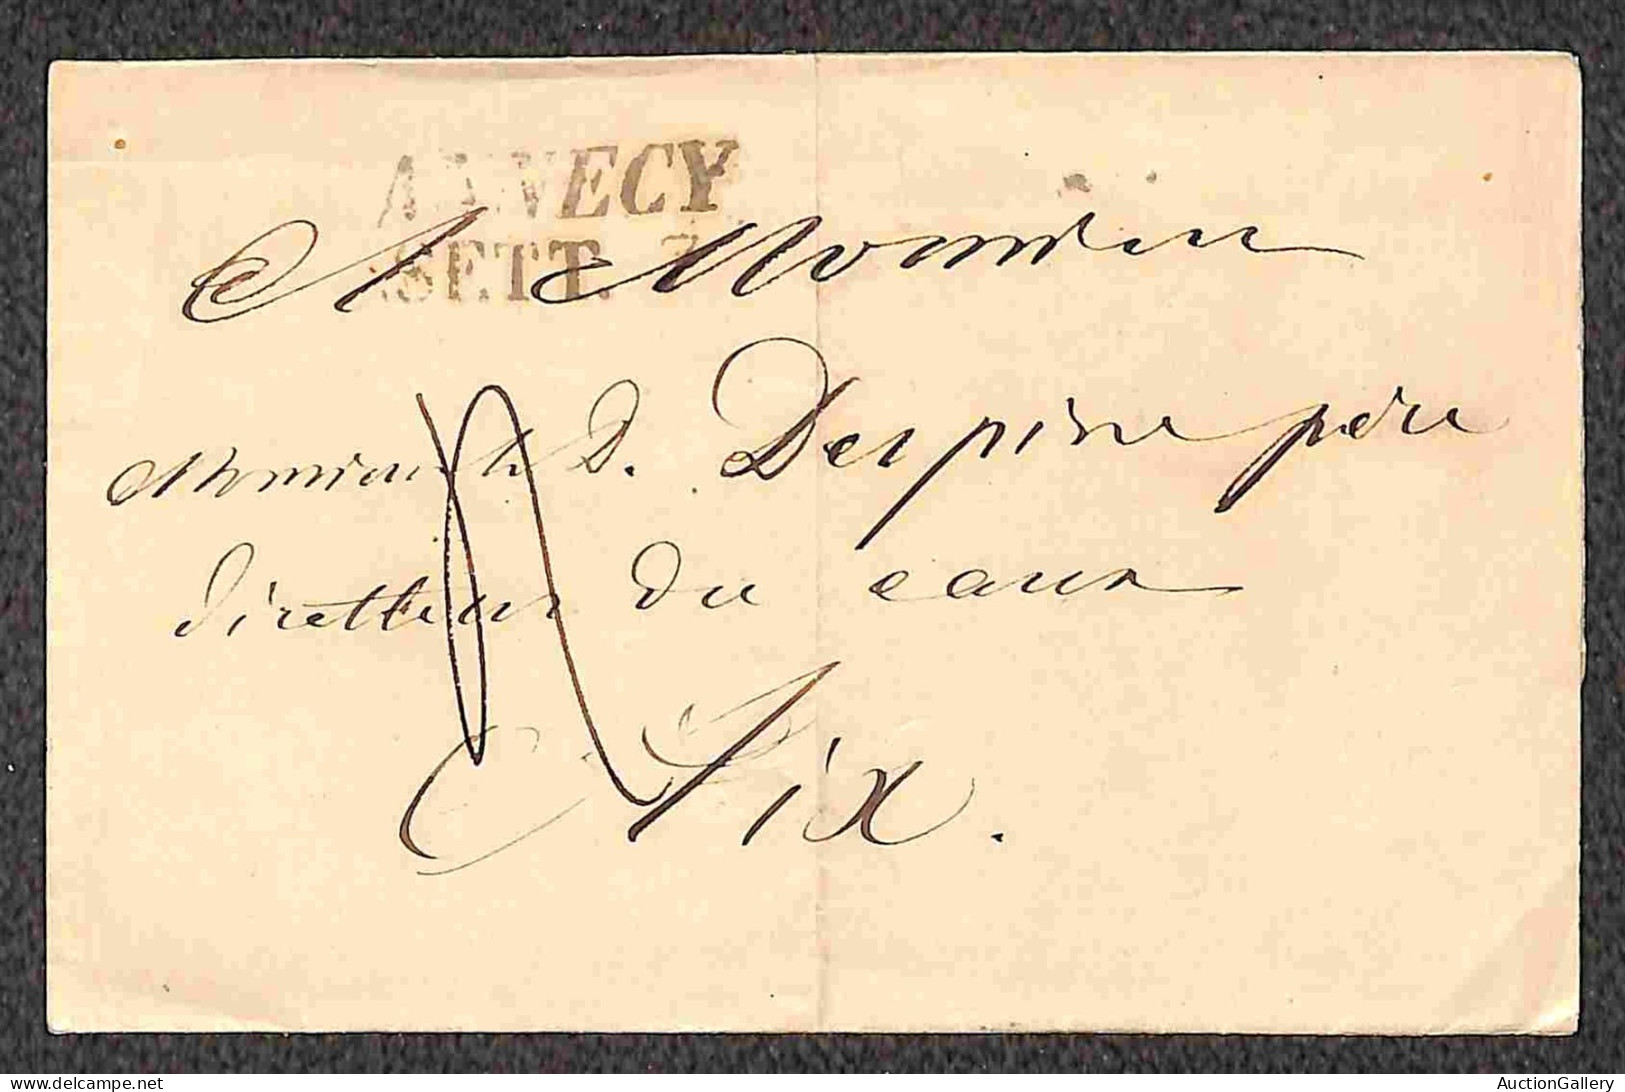 ANNECY
SETT. 7
A Monsieur
Monsieur le D. Despine père
directteur des eaux
Aix.
delcampe.net
AuctionGallery